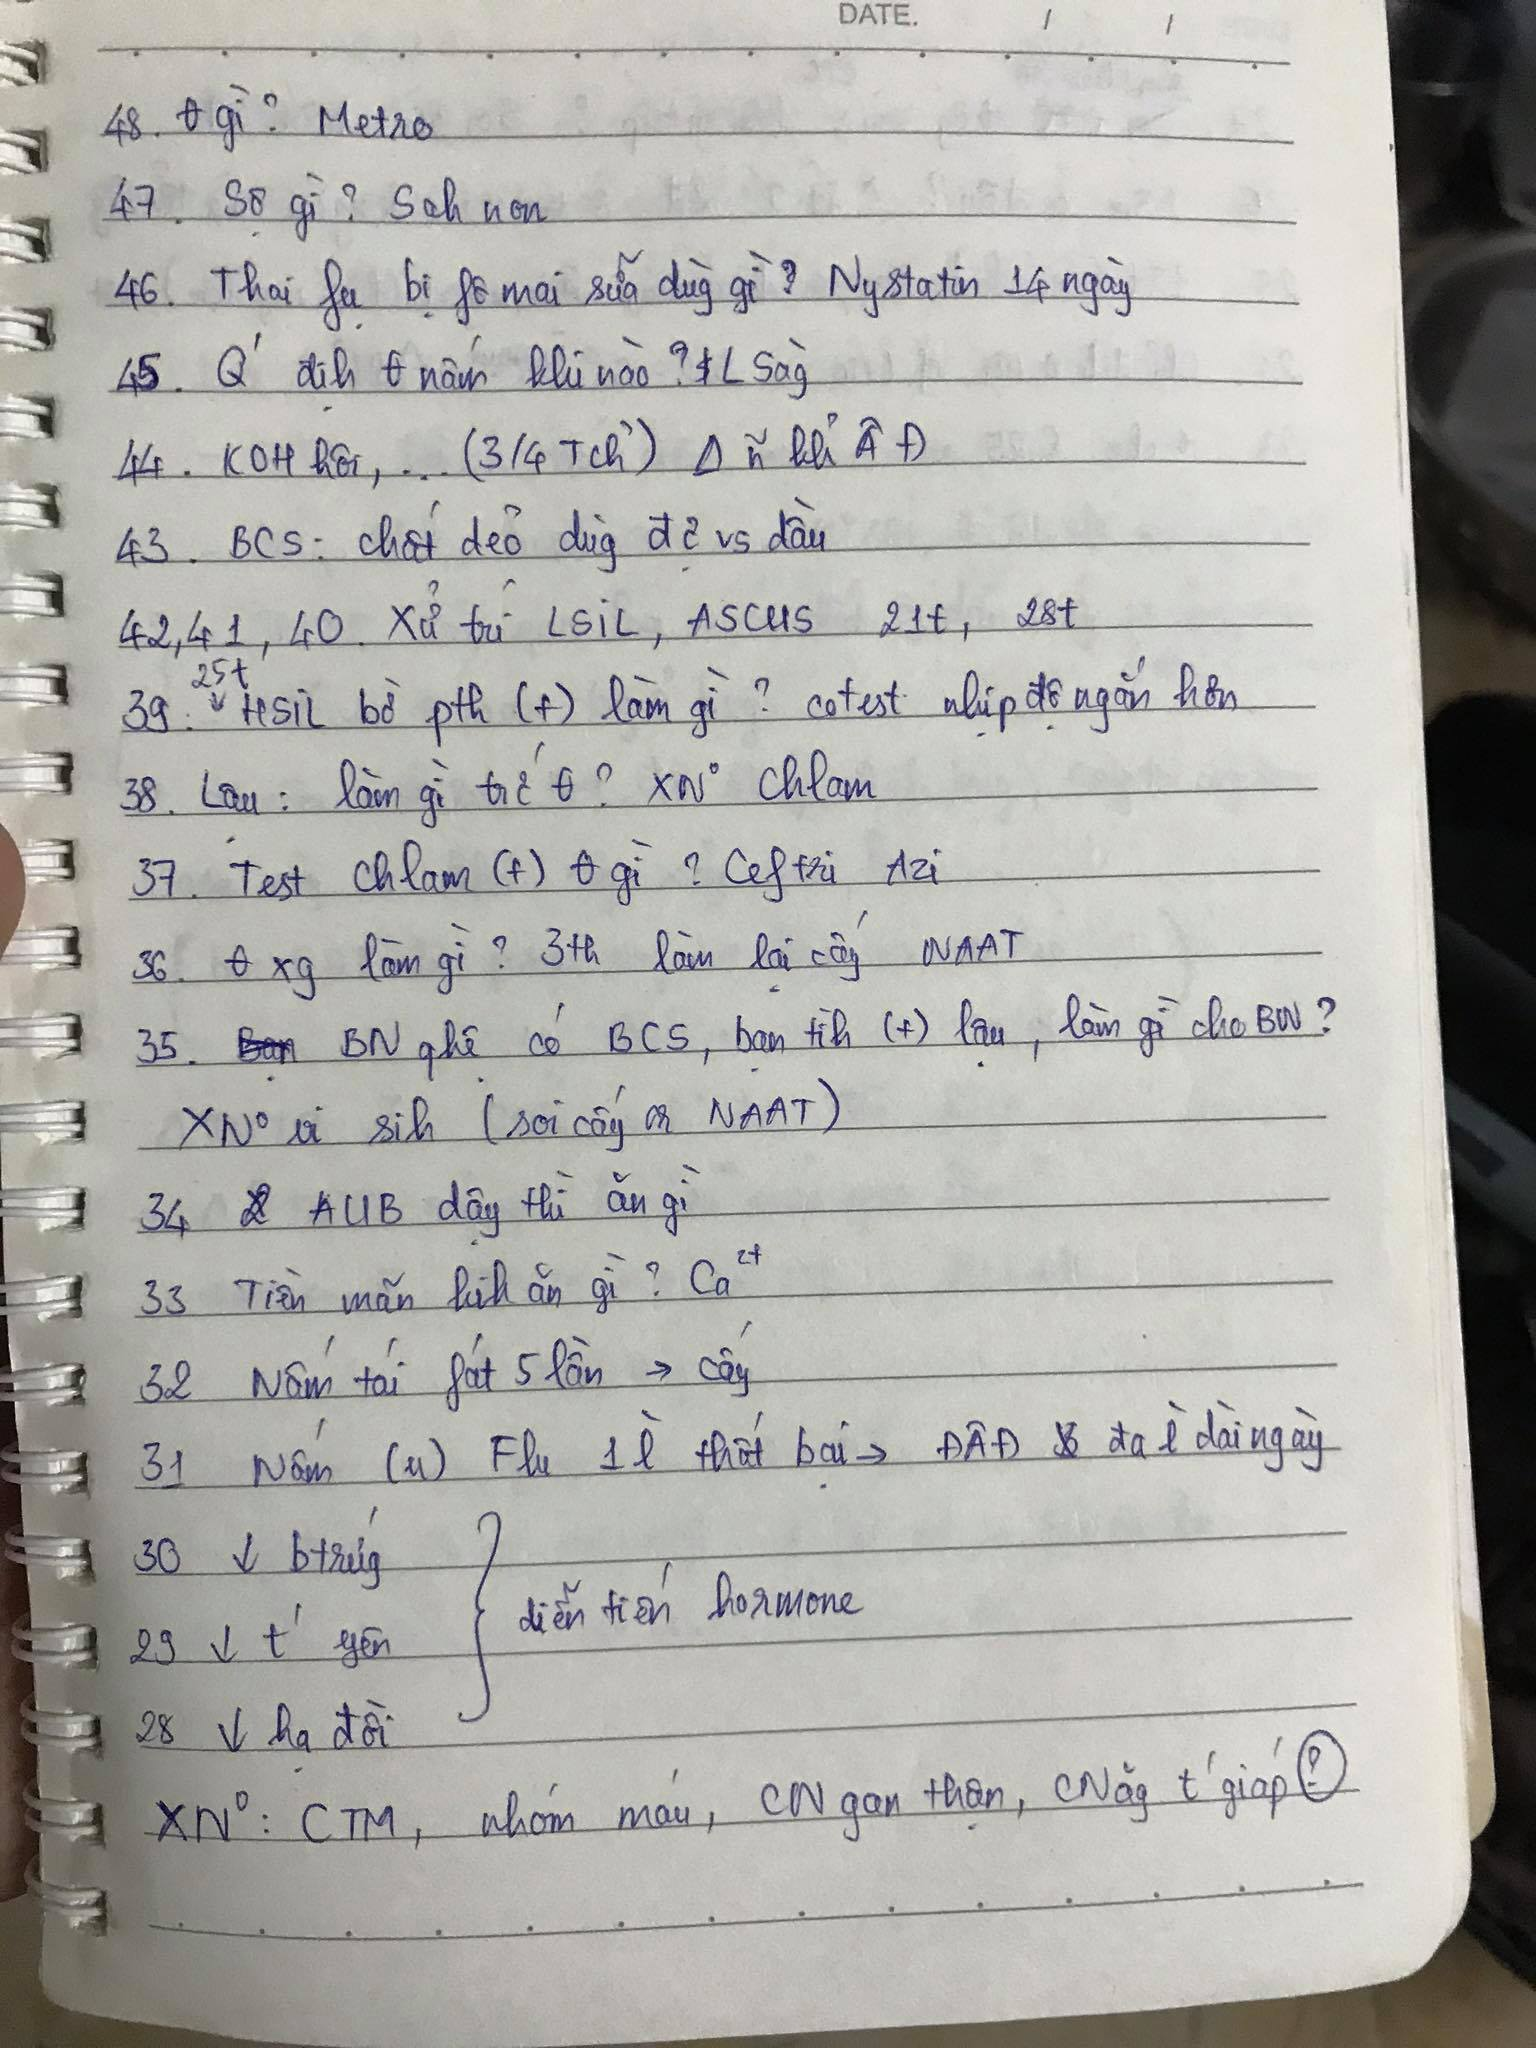 DATE. / /
48. θ gì? Metro
47. Sợ gì? Sah non
46. Thai fụ bị fô mai sữa dùg gì? Nystatin 14 ngày
45. Q' địh θ nấm khi nào? LSàg
44. KOH hôi, ... (3/4 Tch') Δ ñ khí ÂĐ
43. BCS: chất dẻo dùg đc vs dầu
42, 41, 40. Xử trí LSIL, ASCUS 21t, 28t
25t
39. ↓ HSIL bờ pth (+) làm gì? cotest nhịp độ ngắn hơn
38. Lậu: làm gì trc θ? XN° Chlam
37. Test Chlam (+) θ gì? Ceftri Azi
36. θ xg làm gì? 3th làm lại cấy NAAT
35. BN qhệ có BCS, bạn tìh (+) lậu, làm gì cho BN?
XN° vi sih (soi cấy or NAAT)
34 AUB dậy thì ăn gì
33 Tiền mãn kih ăn gì? Ca2+
32 Nấm tái fát 5 lần → cấy
31 Nấm (u) Flu 1 l` thất bại → ĐÂĐ đa l` dài ngày
30 ↓ btrứg
29 ↓ t' yên } diễn tiến hormone
28 ↓ hạ đồi
XN°: CTM, nhóm máu, CN gan thận, CNăg t' giáp ?